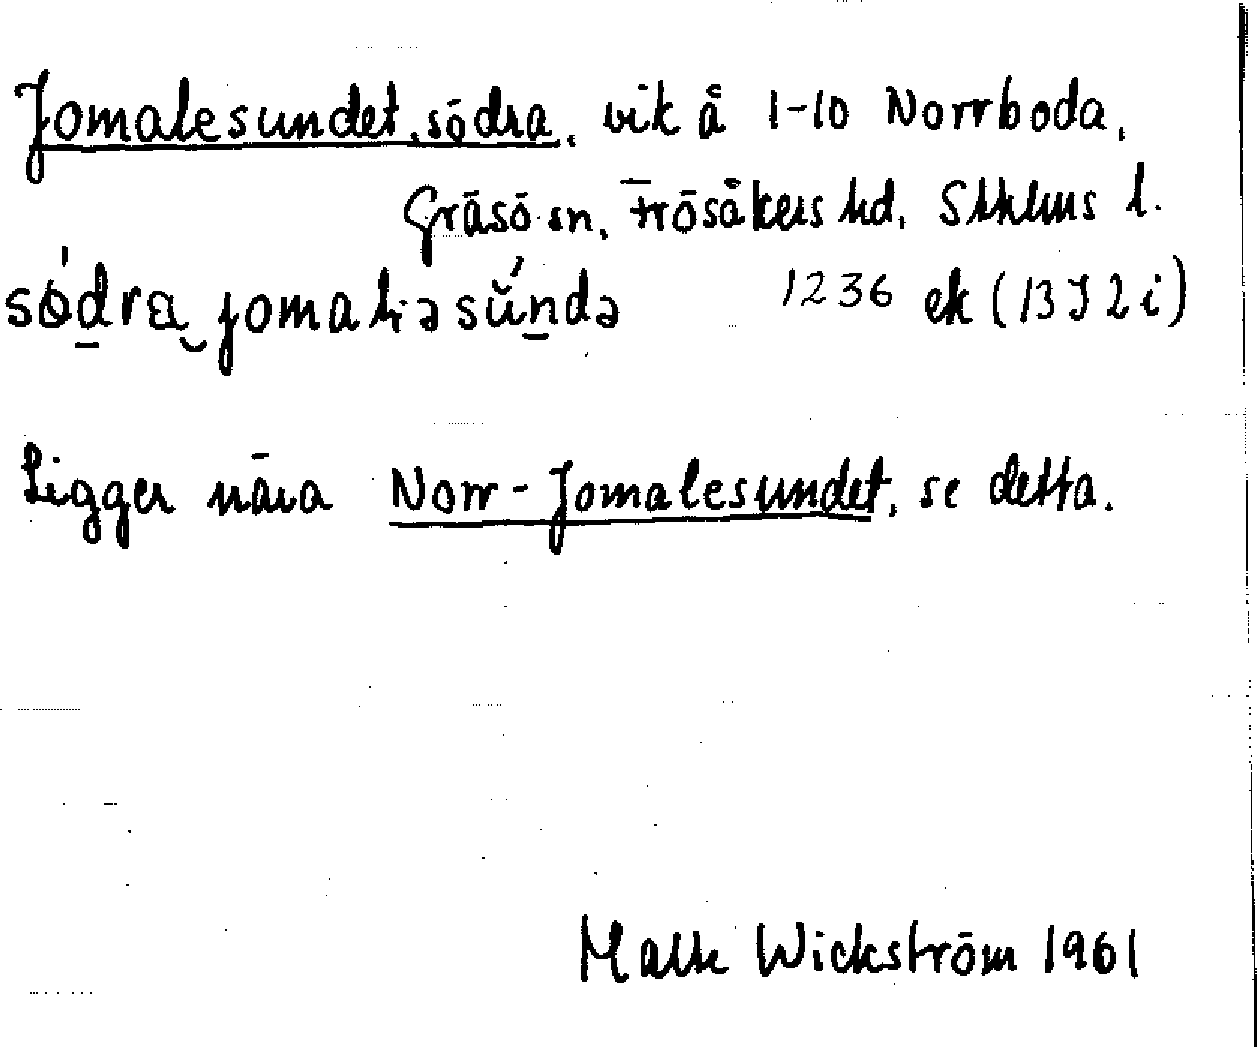 Jomalesundet, södra, vik å 1-10 Norrboda,
Gräsö sn, Frösåkers hd, Sthlms l.
södra jomaləsúndə 1236 ek (13I2i)
Ligger nära Norr-Jomalesundet, se detta.
Malte Wickström 1961